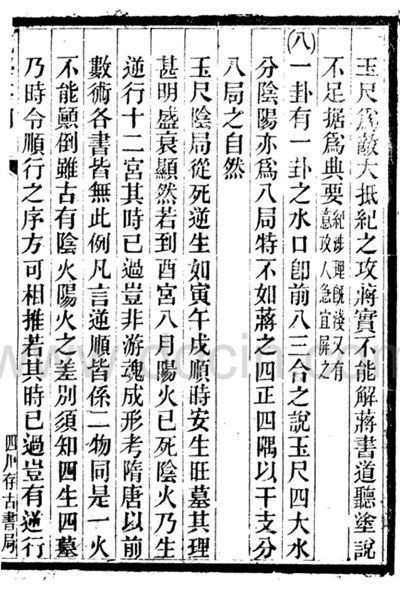 玉尺爲敵大抵紀之攻蔣實不能解蔣書道聽塗說
不足据爲典要紀理旣淺又有
意攻人急宜屏之
(八)一卦有一卦之水口卽前八三合之說玉尺四大水
分陰陽亦爲八局特不如蔣之四正四隅以干支分
八局之自然
玉尺陰局從死逆生如寅午戌順時安生旺墓其理
甚明盛衰顯然若到酉宮八月陽火已死陰火乃生
逆行十二宮其時已過豈非游魂成形考隋唐以前
數術各書皆無此例凡言逆順皆係二物同是一火
不能顚倒雖古有陰火陽火之差別須知四生四墓
乃時令順行之序方可相推若其時已過豈有逆行
四川存古書局